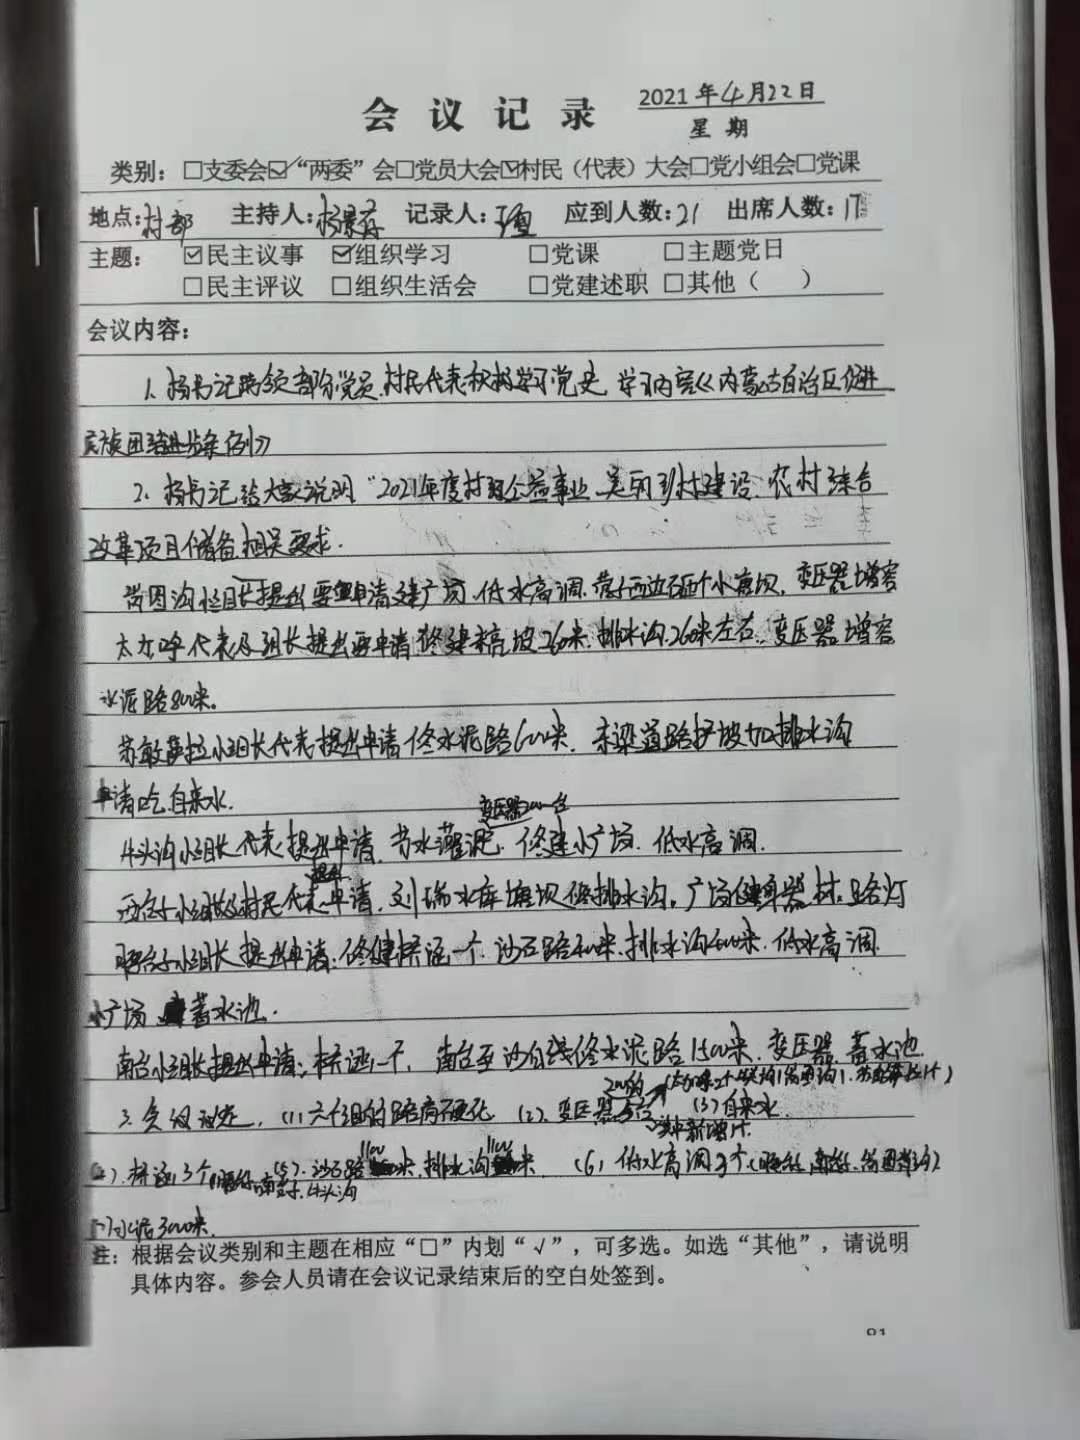 会议记录 2021年4月22日
星期
类别：□支委会☑“两委”会□党员大会☑村民（代表）大会□党小组会□党课
地点：村部 主持人：杨景 记录人：王 应到人数：21 出席人数：17
主题： ☑民主议事 ☑组织学习 □党课 □主题党日
□民主评议 □组织生活会 □党建述职 □其他（ ）
会议内容：
1、杨书记带领部分党员、村民代表积极学习党史，学习内容《内蒙古自治区促进
民族团结进步条例》
2、杨书记给大家说明“2021年度村级公益事业、美丽乡村建设、农村综合
改革项目储备相关要求.
沟小组长提出要申请建广场、低水高调、西边两个小塘坝，变压器增容
代表及组长提出要申请修建护坡260米、排水沟260米左右、变压器增容
水泥路800米。
苏敏萨拉小组长代表提出申请修水泥路600米、梁道路护坡加排水沟
申请吃自来水.
变压器200一台
牛头沟小组长代表提出申请、节水灌溉、修建小广场、低水高调.
提出
西台子小组长及村民代表申请，刘瑞水库塘坝修排水沟，广场健身器材、路灯
台子小组长提出申请：修建桥涵一个、沙石路米、排水沟米、低水高调
小广场 蓄水池.
南台小组长提出申请：桥涵一个，南台至沙线修水泥路1500米、变压器、蓄水池
200的
3、会议决定，（1）六个组的路肩硬化 （2）、变压器5台 （3）自来水.
其中新增1个
（4）、桥涵3个 （5）、沙石路1100米、排水沟1100米 （6）低水高调3个
南台子、牛头沟
（7）水泥3000米.
注：根据会议类别和主题在相应“□”内划“√”，可多选。如选“其他”，请说明
具体内容。参会人员请在会议记录结束后的空白处签到。